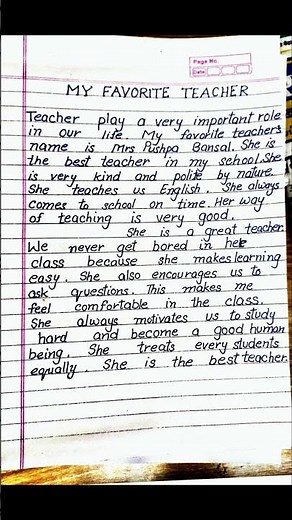 Page No.
Date
MY FAVORITE TEACHER
Teacher play a very important role
in our life. My favorite teacher's
name is Mrs Pushpa Bansal. She is
the best teacher in my school. She
is very kind and polite by nature.
She teaches us English. She always
comes to school on time. Her way
of teaching is very good.
She is a great teacher.
We never get bored in her
class because she makes learning
easy. She also encourages us to
ask questions. This makes me
feel comfortable in the class.
She always motivates us to study
hard and become a good human
being. She treats every students
equally. She is the best teacher.